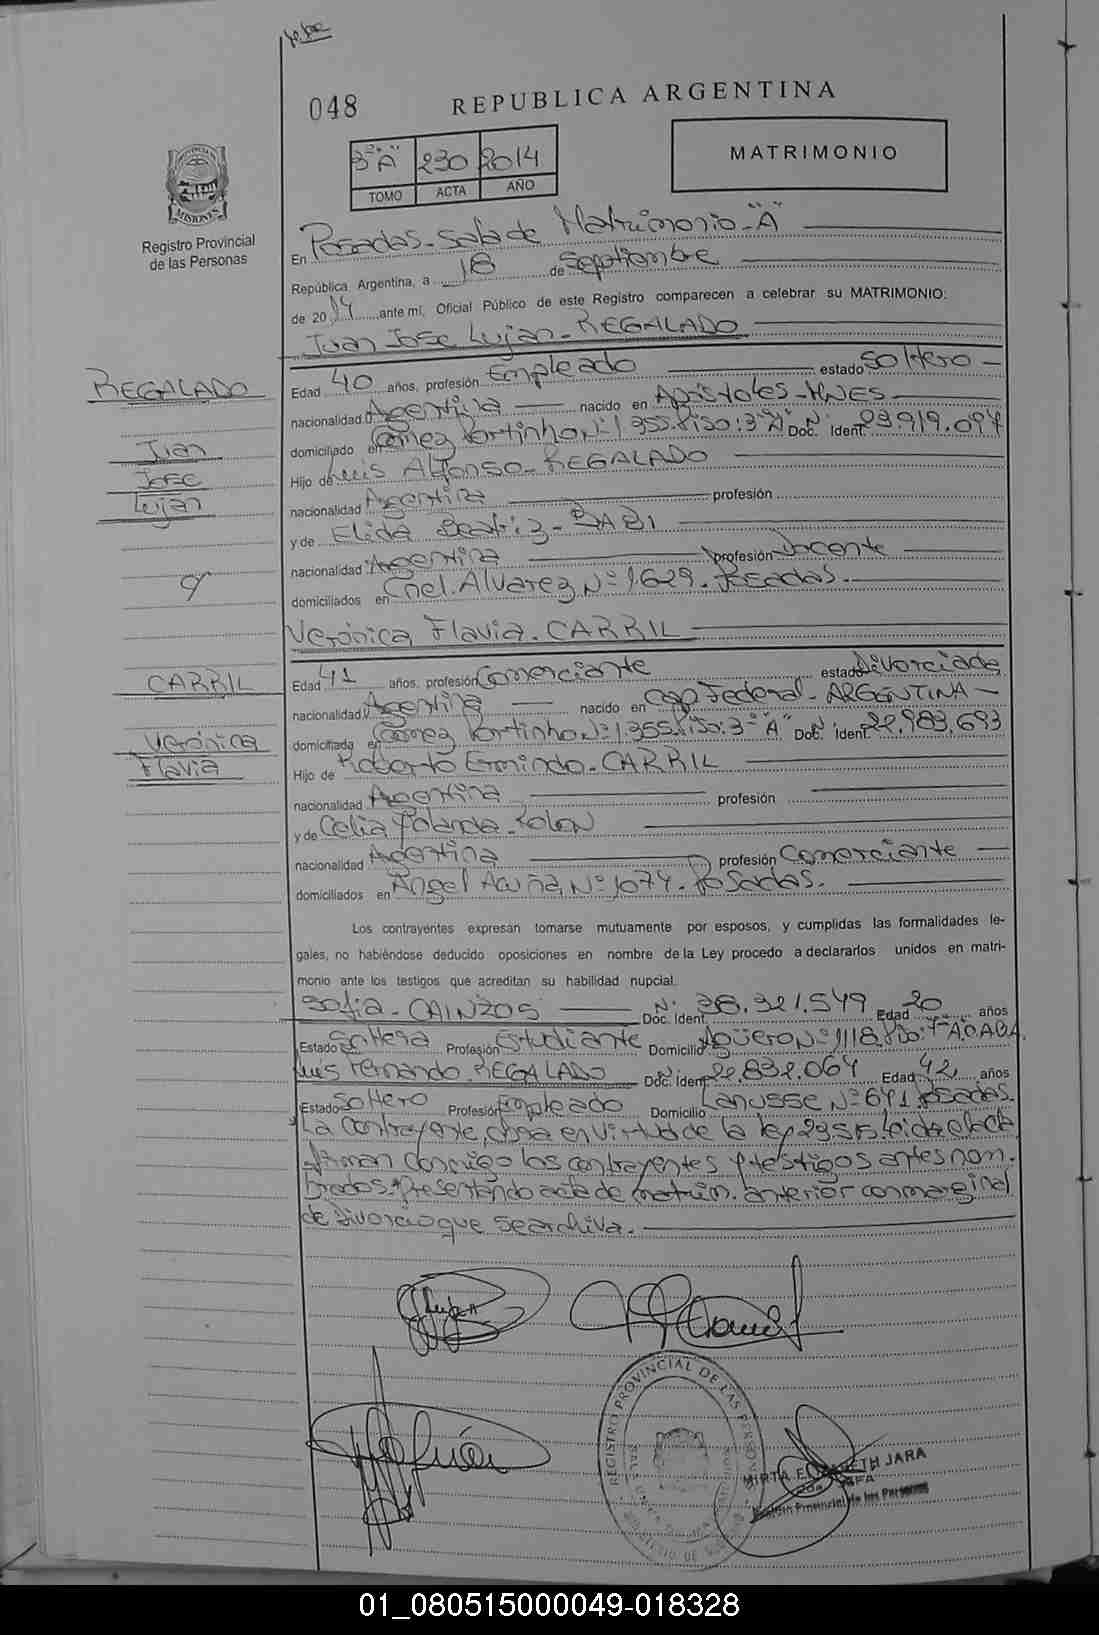 048 REPUBLICA ARGENTINA
3º "A" 230 2014
TOMO ACTA AÑO
MATRIMONIO
MISIONES
Registro Provincial
de las Personas
En Posadas - Sala de Matrimonio - "A"
República Argentina, a 18 de Septiembre
de 2014 ante mí, Oficial Público de este Registro comparecen a celebrar su MATRIMONIO:
Juan Jose Lujan - REGALADO
REGALADO
Juan
Jose
Lujan
y
Edad 40 años, profesión Empleado estado Soltero
nacionalidad Argentina nacido en Apóstoles - MNES
domiciliado en Gomez Portinho Nº 1355 Piso: 3º "A" Doc. Ident. Nº 23.919.097
Hijo de Luis Alfonso - REGALADO
nacionalidad Argentina profesión
y de Elida Beatriz - BABI
nacionalidad Argentina profesión Docente
domiciliados en Cnel. Alvarez Nº 1629. Posadas.
Verónica Flavia. CARRIL
CARRIL
Verónica
Flavia
Edad 41 años, profesión Comerciante estado Divorciada
nacionalidad Argentina nacido en Cap. Federal - ARGENTINA
domiciliada en Gomez Portinho Nº 1355 Piso: 3º "A" Doc. Ident. Nº 22.983.693
Hijo de Roberto Ermindo - CARRIL
nacionalidad Argentina profesión
y de Celia Yolanda - COLON
nacionalidad Argentina profesión Comerciante
domiciliados en Angel Acuña Nº 1074. Posadas.
Los contrayentes expresan tomarse mutuamente por esposos, y cumplidas las formalidades le-
gales, no habiéndose deducido oposiciones en nombre de la Ley procedo a declararlos unidos en matri-
monio ante los testigos que acreditan su habilidad nupcial.
Sofia - CAINZOS Nº Doc. Ident. 38.321.549 Edad 20 años
Estado Soltera Profesión Estudiante Domicilio Agüero Nº 1118
Luis Fernando. REGALADO Nº Doc. Ident. 22.832.064 Edad 42 años
Estado Soltero Profesión Empleado Domicilio Lanusse Nº 641 Posadas.
La contrayente, obra en virtud de la ley 23515. Leida el acta
firman conmigo los contrayentes y testigos antes nom-
brados. Presentando acta de matrim. anterior con marginal
de divorcio que se archiva.
REGISTRO PROVINCIAL DE LAS PERSONAS
MIRTA ELIZABETH JARA
Registro Provincial de las Personas
01_080515000049-018328